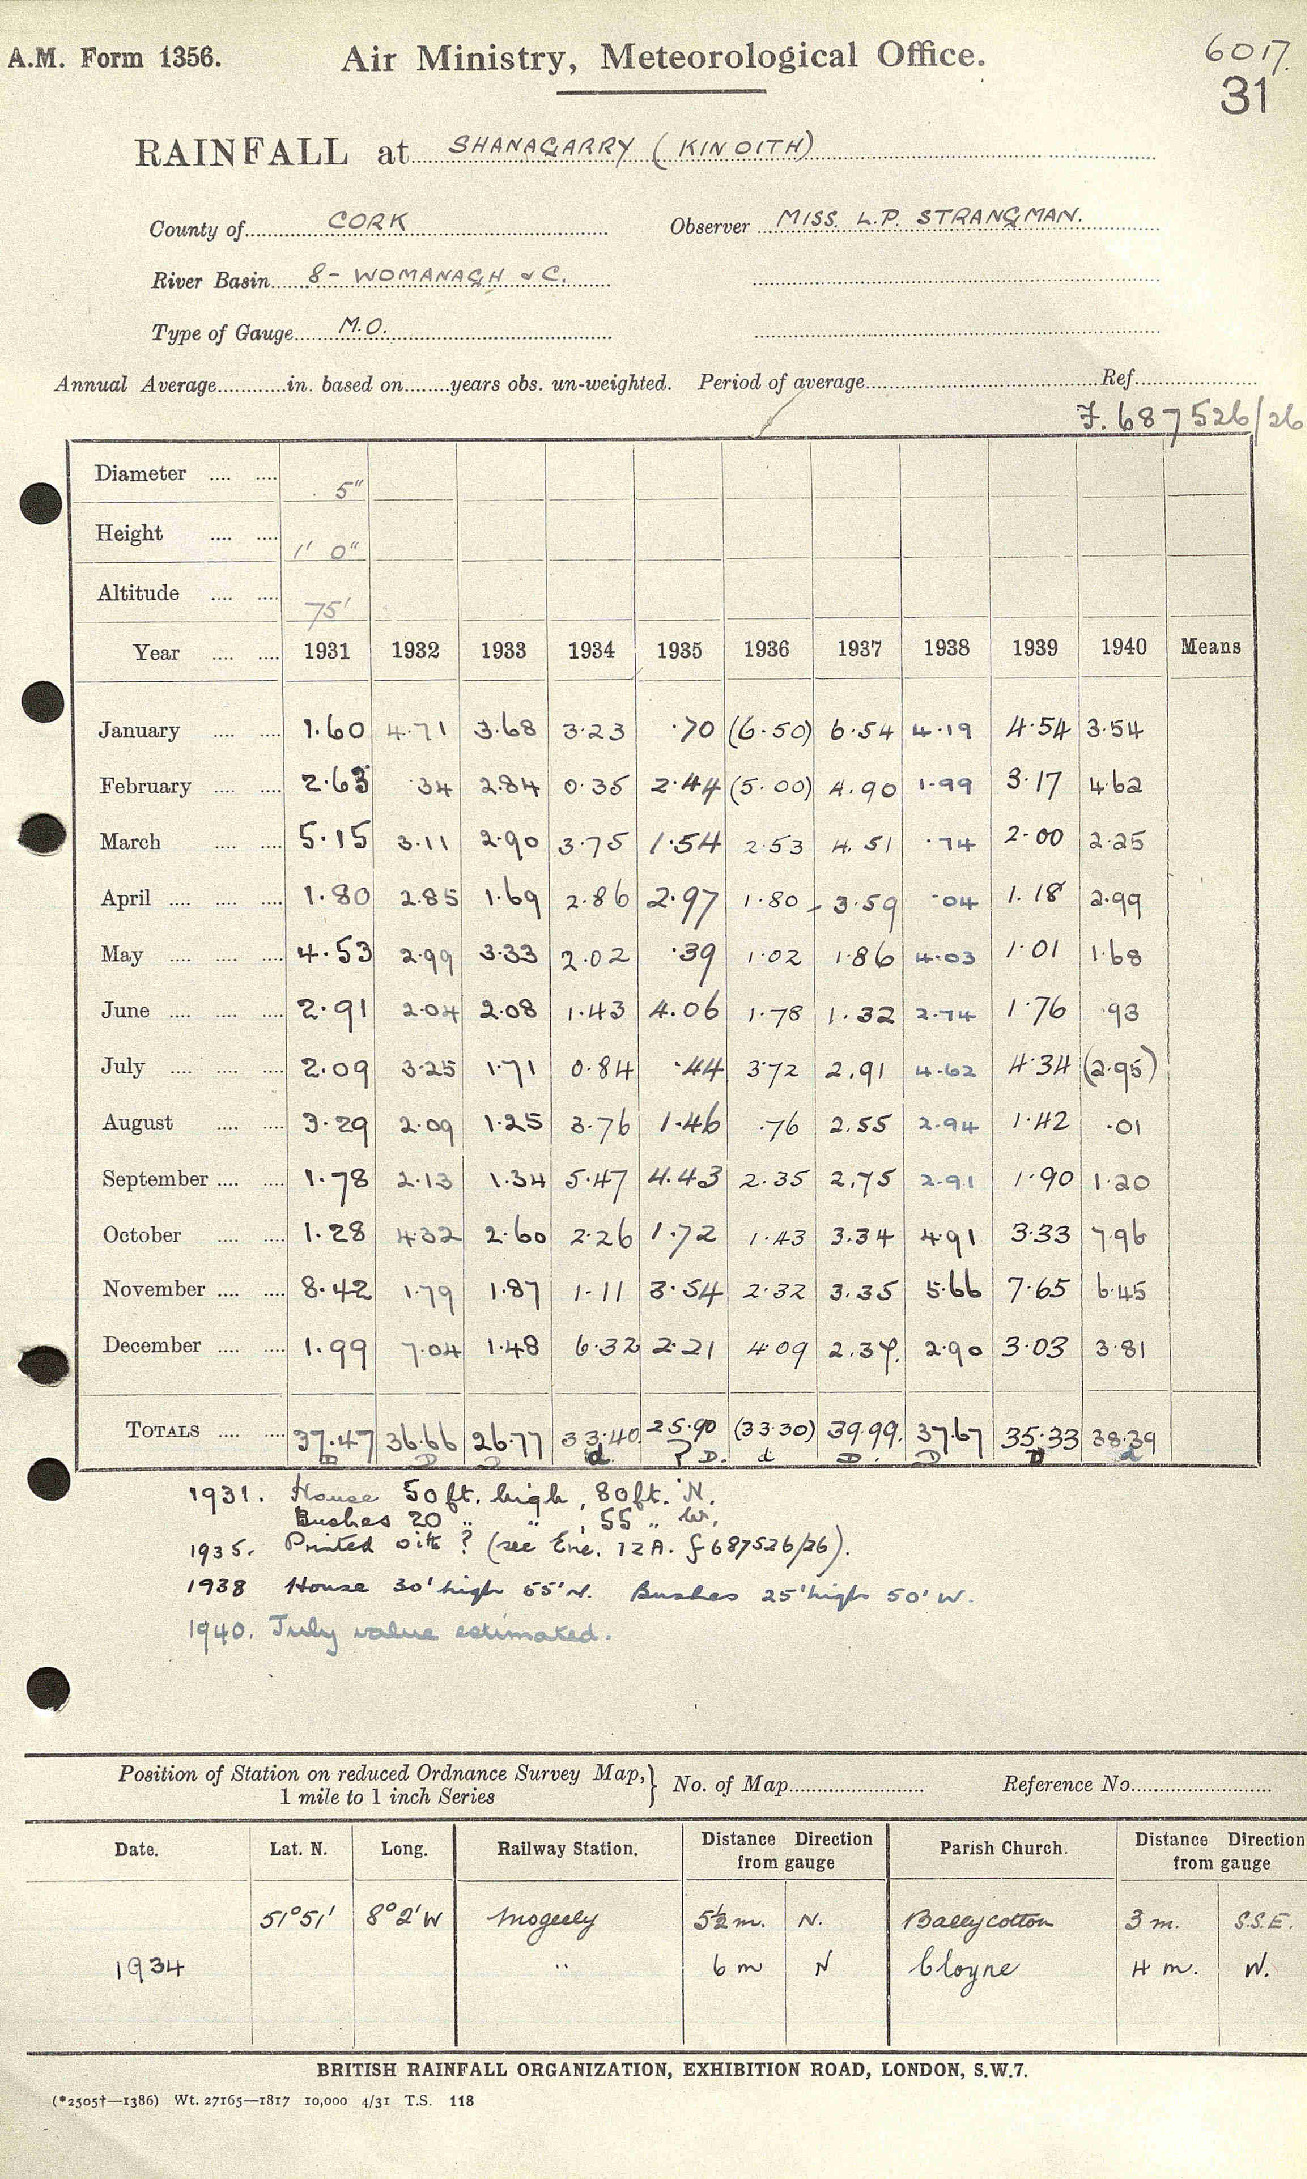 A.M. Form 1356. Air Ministry, Meteorological Office. 6017.
31
RAINFALL at SHANAGARRY (KINOITH)
County of CORK Observer MISS. L.P. STRANGMAN.
River Basin 8 - WOMANAGH & C.
Type of Gauge M.O.
Annual Average in. based on years obs. un-weighted. Period of average Ref.
F. 687526/26
Diameter 5"
Height 1' 0"
Altitude 75'
Year 1931 1932 1933 1934 1935 1936 1937 1938 1939 1940 Means
January 1.60 4.71 3.68 3.23 .70 (6.50) 6.54 4.19 4.54 3.54
February 2.63 .34 2.84 0.35 2.44 (5.00) 4.90 1.99 3.17 4.62
March 5.15 3.11 2.90 3.75 1.54 2.53 4.51 .74 2.00 2.25
April 1.80 2.85 1.69 2.86 2.97 1.80 3.59 .04 1.18 2.99
May 4.53 2.99 3.33 2.02 .39 1.02 1.86 4.03 1.01 1.68
June 2.91 2.04 2.08 1.43 4.06 1.78 1.32 2.74 1.76 .93
July 2.09 3.25 1.71 0.84 .44 3.72 2.91 4.62 4.34 (2.95)
August 3.29 2.09 1.25 3.76 1.46 .76 2.55 2.94 1.42 .01
September 1.78 2.13 1.34 5.47 4.43 2.35 2.75 2.91 1.90 1.20
October 1.28 4.32 2.60 2.26 1.72 1.43 3.34 4.91 3.33 7.96
November 8.42 1.79 1.87 1.11 3.54 2.32 3.35 5.66 7.65 6.45
December 1.99 7.04 1.48 6.32 2.21 4.09 2.37. 2.90 3.03 3.81
TOTALS 37.47 36.66 26.77 33.40 25.90 (33.30) 39.99. 37.67 35.33 38.39
D D D d ? D. d D. D D d
1931. House 50 ft. high, 80 ft. N.
Bushes 20 " " , 55 " W.
1935. Printed with ? (see Enc. 12A. f 687526/26).
1938 House 30' high 55' N. Bushes 25' high 50' W.
1940. July value estimated.
Position of Station on reduced Ordnance Survey Map, } No. of Map Reference No
1 mile to 1 inch Series
Date. Lat. N. Long. Railway Station. Distance Direction from gauge Parish Church. Distance Direction from gauge
51°51' 8°2'W Mogeely 5½ m. N. Ballycotton 3 m. S.S.E.
1934 " 6 m N Cloyne 4 m. W.
BRITISH RAINFALL ORGANIZATION, EXHIBITION ROAD, LONDON, S.W.7.
(*2505†—1386) Wt. 27165—1817 10,000 4/31 T.S. 118